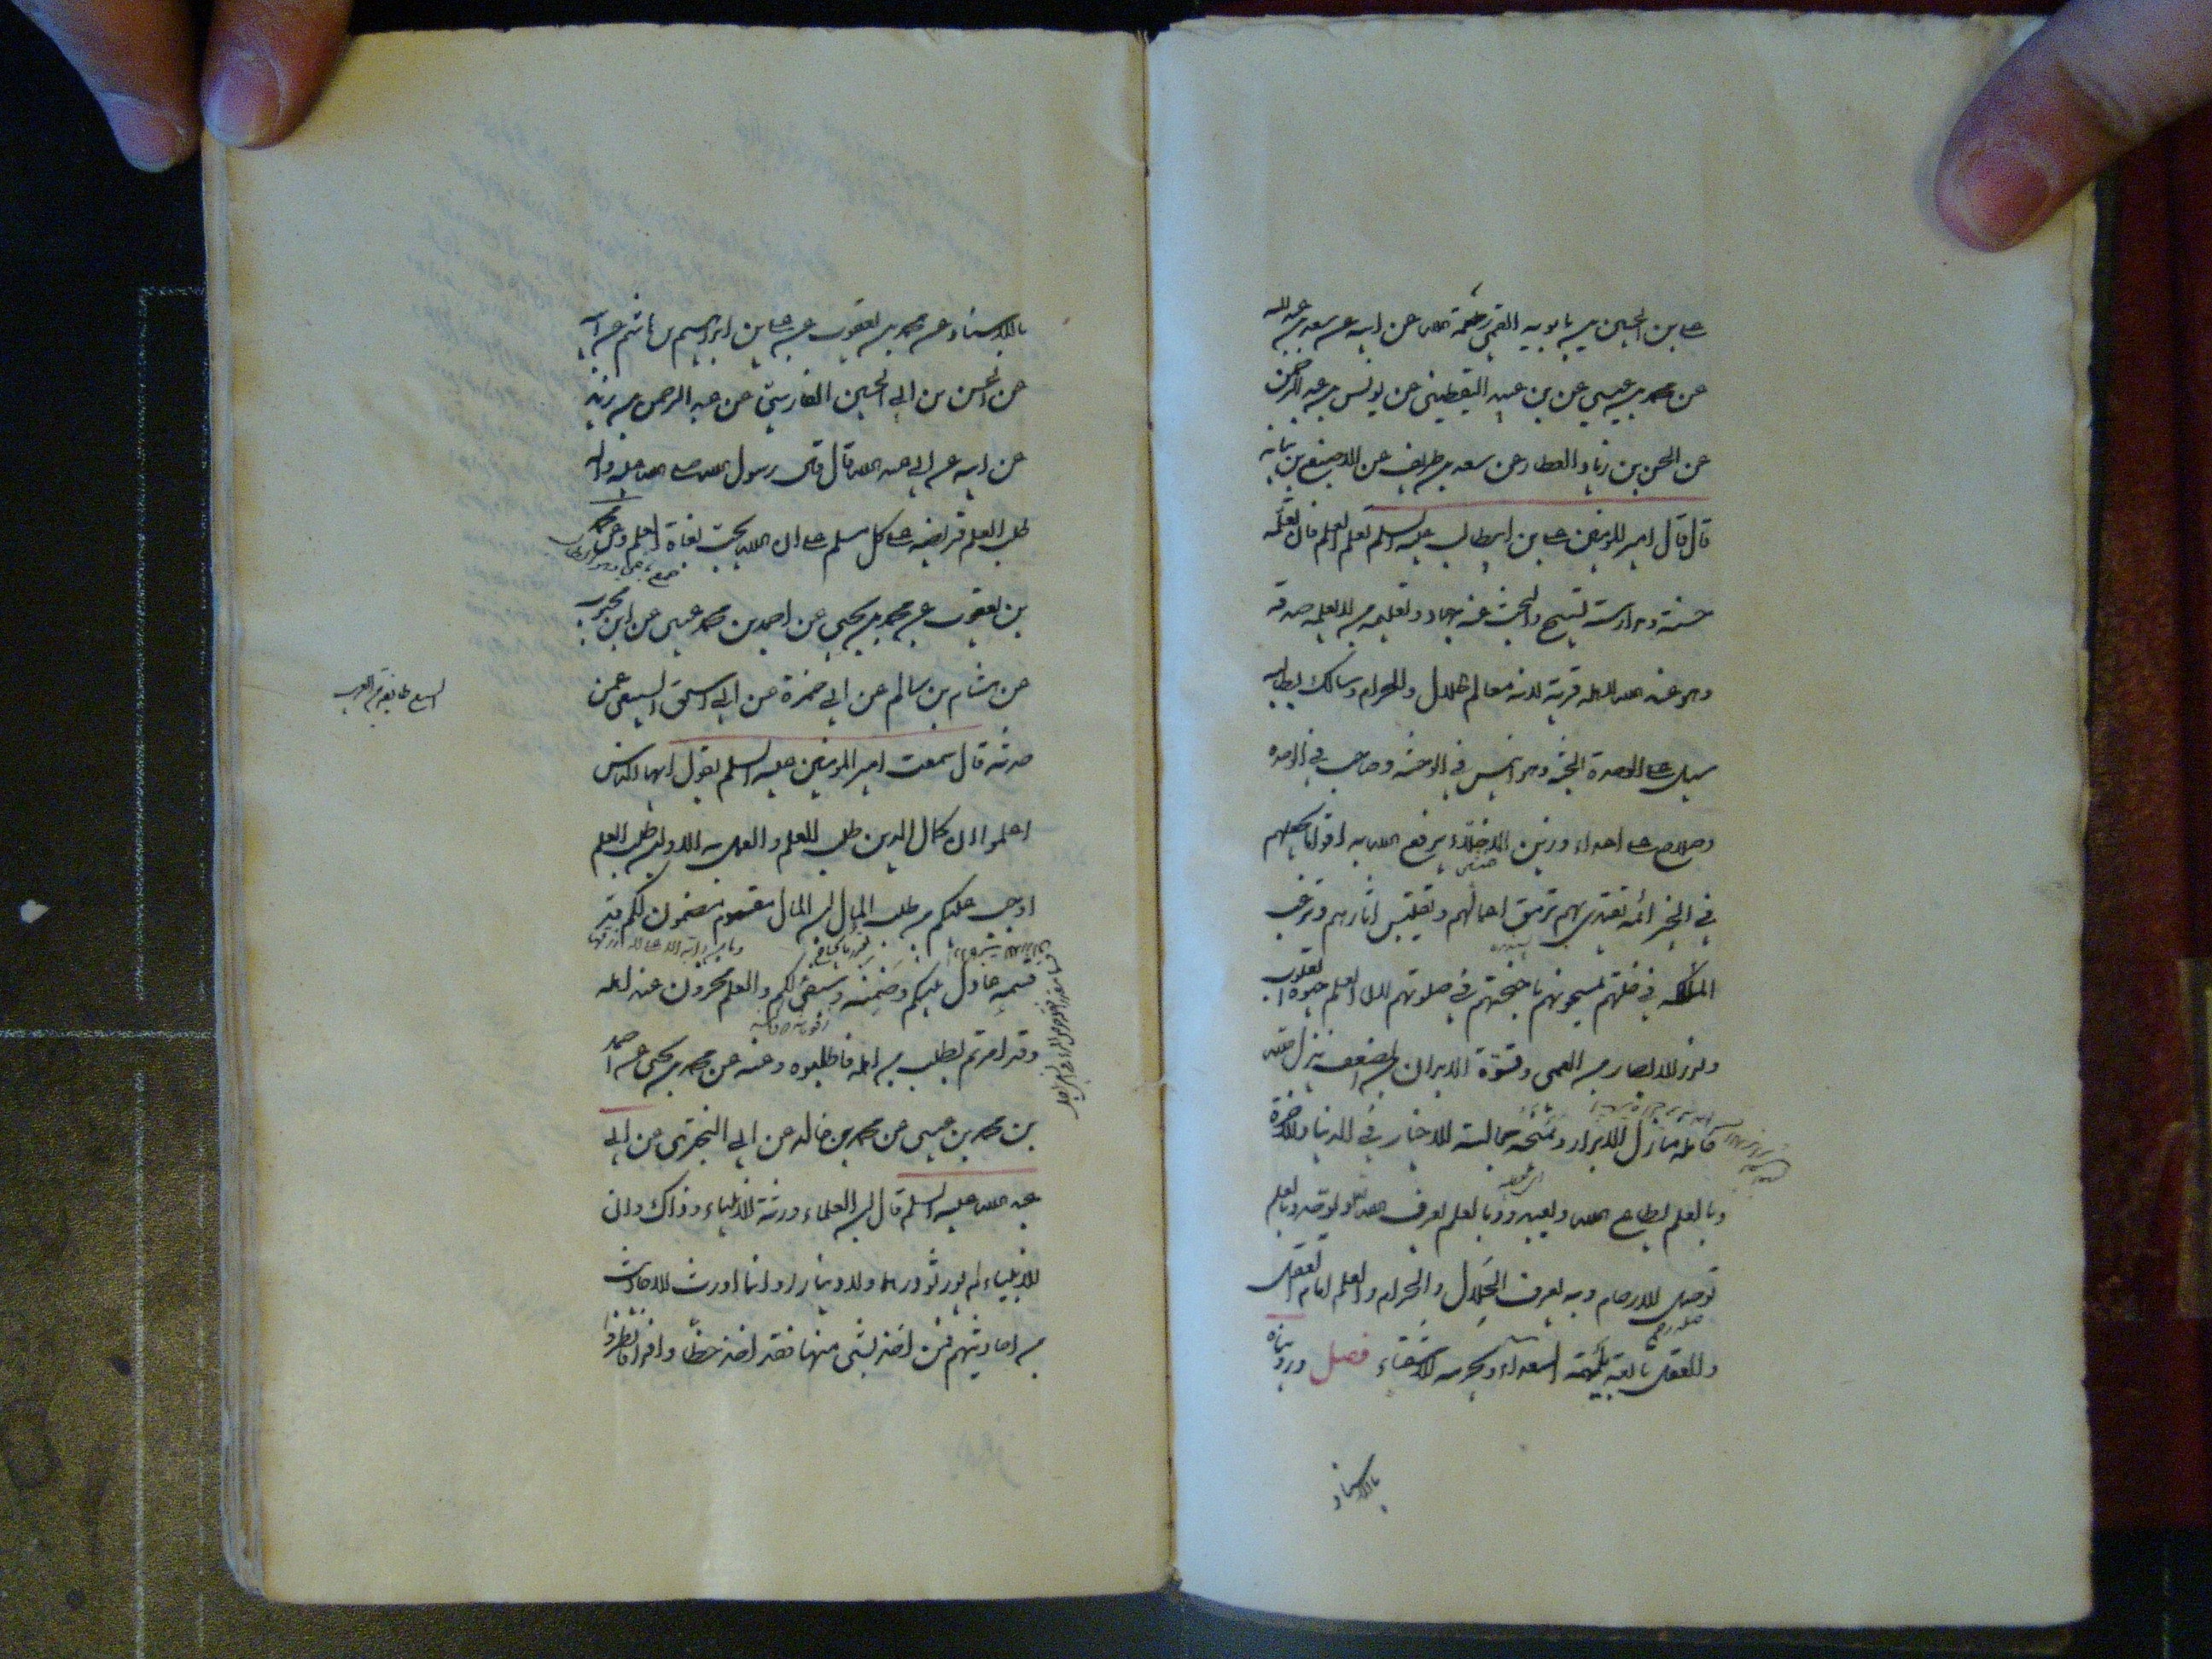 علی بن الحسین بن بابویه القمی رحمة الله عن ابیه عن سعد بن عبدالله
عن محمد بن عیسی عن بن عبید الیقطینی عن یونس بن عبد الرحمن
عن الحسن بن زیاد العطار عن سعد بن طریف عن الاصبغ بن نباته
قال قال امیر المومنین علی بن ابیطالب علیه السلم تعلم العلم فان تعلمه
حسنة ومدارسته تسبیح والبحث عنه جهاد وتعلیمه من لا یعلمه صدقه
وهو عند الله لاهله قربة لانه معالم الحلال والحرام وسالک بطالبه
سبیل الجنة وهو انیس فی الوحشه وصاحب فی الوحده
وسلاح علی الاعداء وزین الاخلاء یرفع الله به اقواما یجعلهم
فی الخیر ائمة یقتدی بهم ترمق اعمالهم وتقتبس اثارهم وترغب
الملائکه فی خلتهم یمسحونهم باجنحتهم فی صلوتهم لان العلم حیوة القلوب
ونور الابصار من العمی وقوة الابدان من الضعف ینزل الله
حامله منازل الابرار ویمنحه مجالسة الاخیار فی الدنیا والاخرة
وبالعلم یطاع الله ویعبد وبالعلم یعرف الله ویوحد وبالعلم
توصل الارحام وبه یعرف الحلال والحرام والعلم امام العقل
صله رحم
والعقل تابعه یلهمه السعداء ویحرمه الاشقیاء فصل وروینا
بالاسناد
بالاسناد عن محمد بن یعقوب عن علی بن ابراهیم بن هاشم عن ابیه
عن الحسن بن ابی الحسین الفارسی عن عبد الرحمن بن زید
عن ابیه عن ابی عبد الله قال قال رسول الله صلی الله علیه واله
طلب العلم فریضه علی کل مسلم الا ان الله یحب بغاة العلم وعن محمد
بن یعقوب عن محمد بن یحیی عن احمد بن محمد عیسی عن ابن محبوب
عن هشام بن سالم عن ابی حمزة عن ابی اسحق السبیعی عمن
حدثه قال سمعت امیر المومنین علیه السلم یقول ایها الناس
اعلموا ان کمال الدین طلب العلم والعمل به الا وان طلب العلم
اوجب علیکم من طلب المال ان المال مقسوم مضمون لکم قد
قسمه عادل بینکم وضمنه وسیفی لکم والعلم مخزون عند اهله
وقد امرتم بطلبه من اهله فاطلبوه وعنه عن محمد بن یحیی عن احمد
بن محمد بن عیسی عن محمد بن خالد عن ابی البختری عن ابی
عبد الله علیه السلم قال ان العلماء ورثة الانبیاء وذاک وان
الانبیاء لم یورثوا درهما ولا دینارا وانما اورثوا الاحادیث
من احادیثهم فمن اخذ بشی منها فقد اخذ حظا وافرا فانظروا